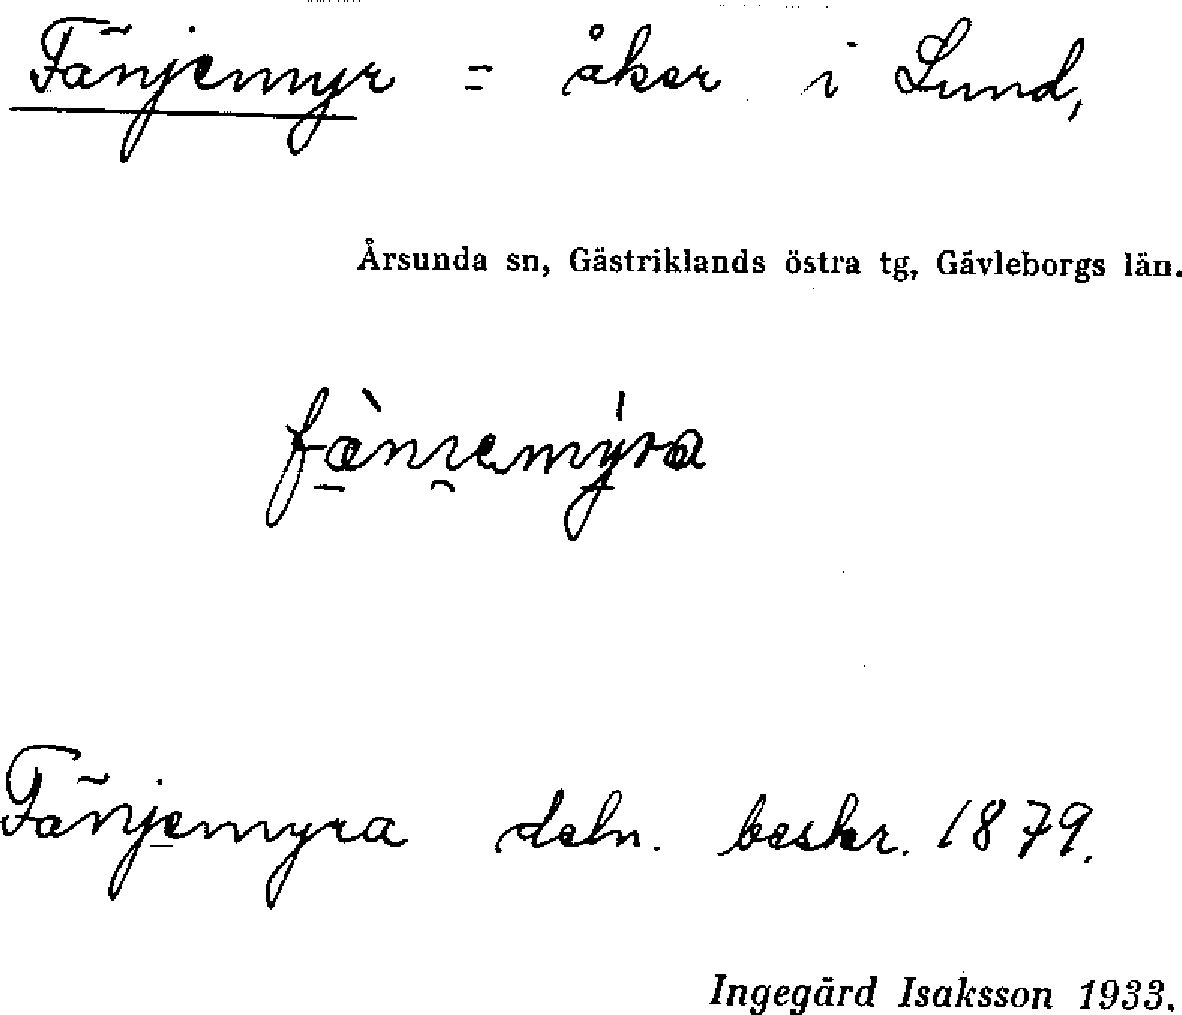 Fänjemyr = åker i Lund,
Årsunda sn, Gästriklands östra tg, Gävleborgs län.
Fänjemyra deln. beskr. 1879.
Ingegärd Isaksson 1933.